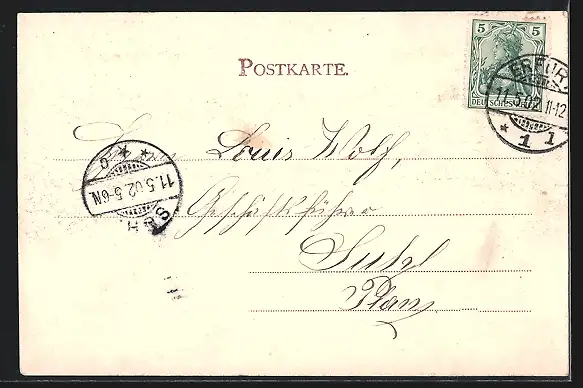 5 5
DEUTSCHES REICH
ERFURT
11.5.02 11-12
* 1 1
POSTKARTE.
Herrn Louis Wolf,
Geschäftsführer
Suhl
11.5.02.5-6N.
SUHL